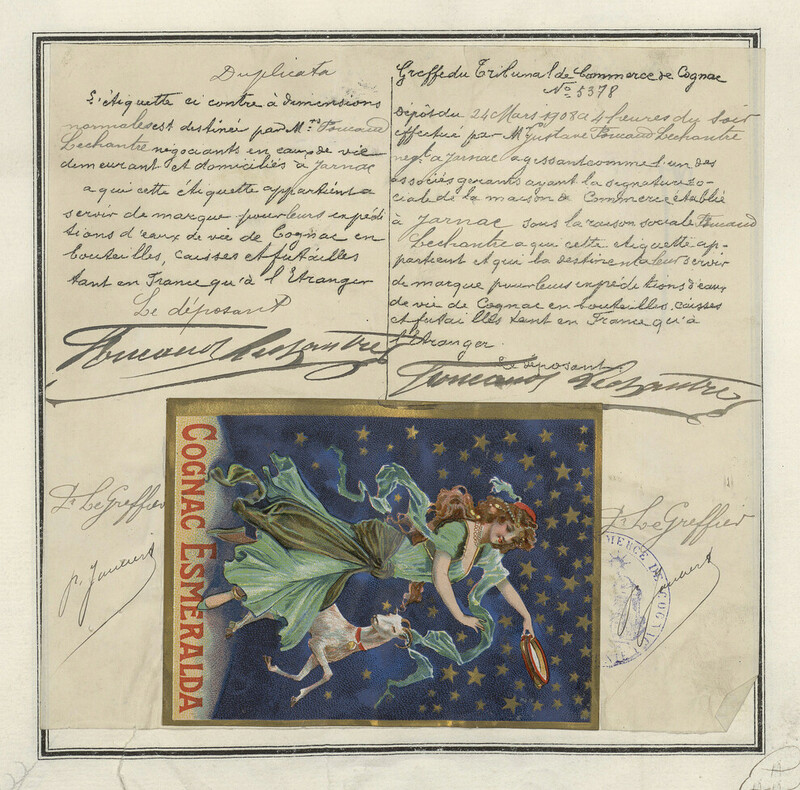 Duplicata
L'étiquette ci contre à dimensions
normales est destinée par Mrs Foucaud
Lechantre négociants en eaux de vie
demeurant et domiciliés à Jarnac
a qui cette étiquette appartient a
servir de marque pour leurs expédi
tions d'eaux de vie de Cognac en
bouteilles, caisses et futailles
tant en France qu'à l'Etranger
Le déposant
Foucaud Lechantre
Greffe du Tribunal de Commerce de Cognac
No 5378
Dépôt du 24 Mars 1908 a 4 heures du soir
effectué par Mr Gustave Foucaud Lechantre
negt a Jarnac agissant comme l'un des
associés gerants ayant la signature so-
ciale de la maison de Commerce établie
à Jarnac sous la raison sociale Foucaud
Lechantre a qui cette étiquette ap-
partient et qui la destinent a leur servir
de marque pour leurs expéditions d'eaux
de vie de Cognac en bouteilles, caisses
et futailles tant en France qu'à
l'Etranger.
Le déposant
Foucaud Lechantre
COGNAC ESMERALDA
Pr Le Greffier
Pr Le Greffier